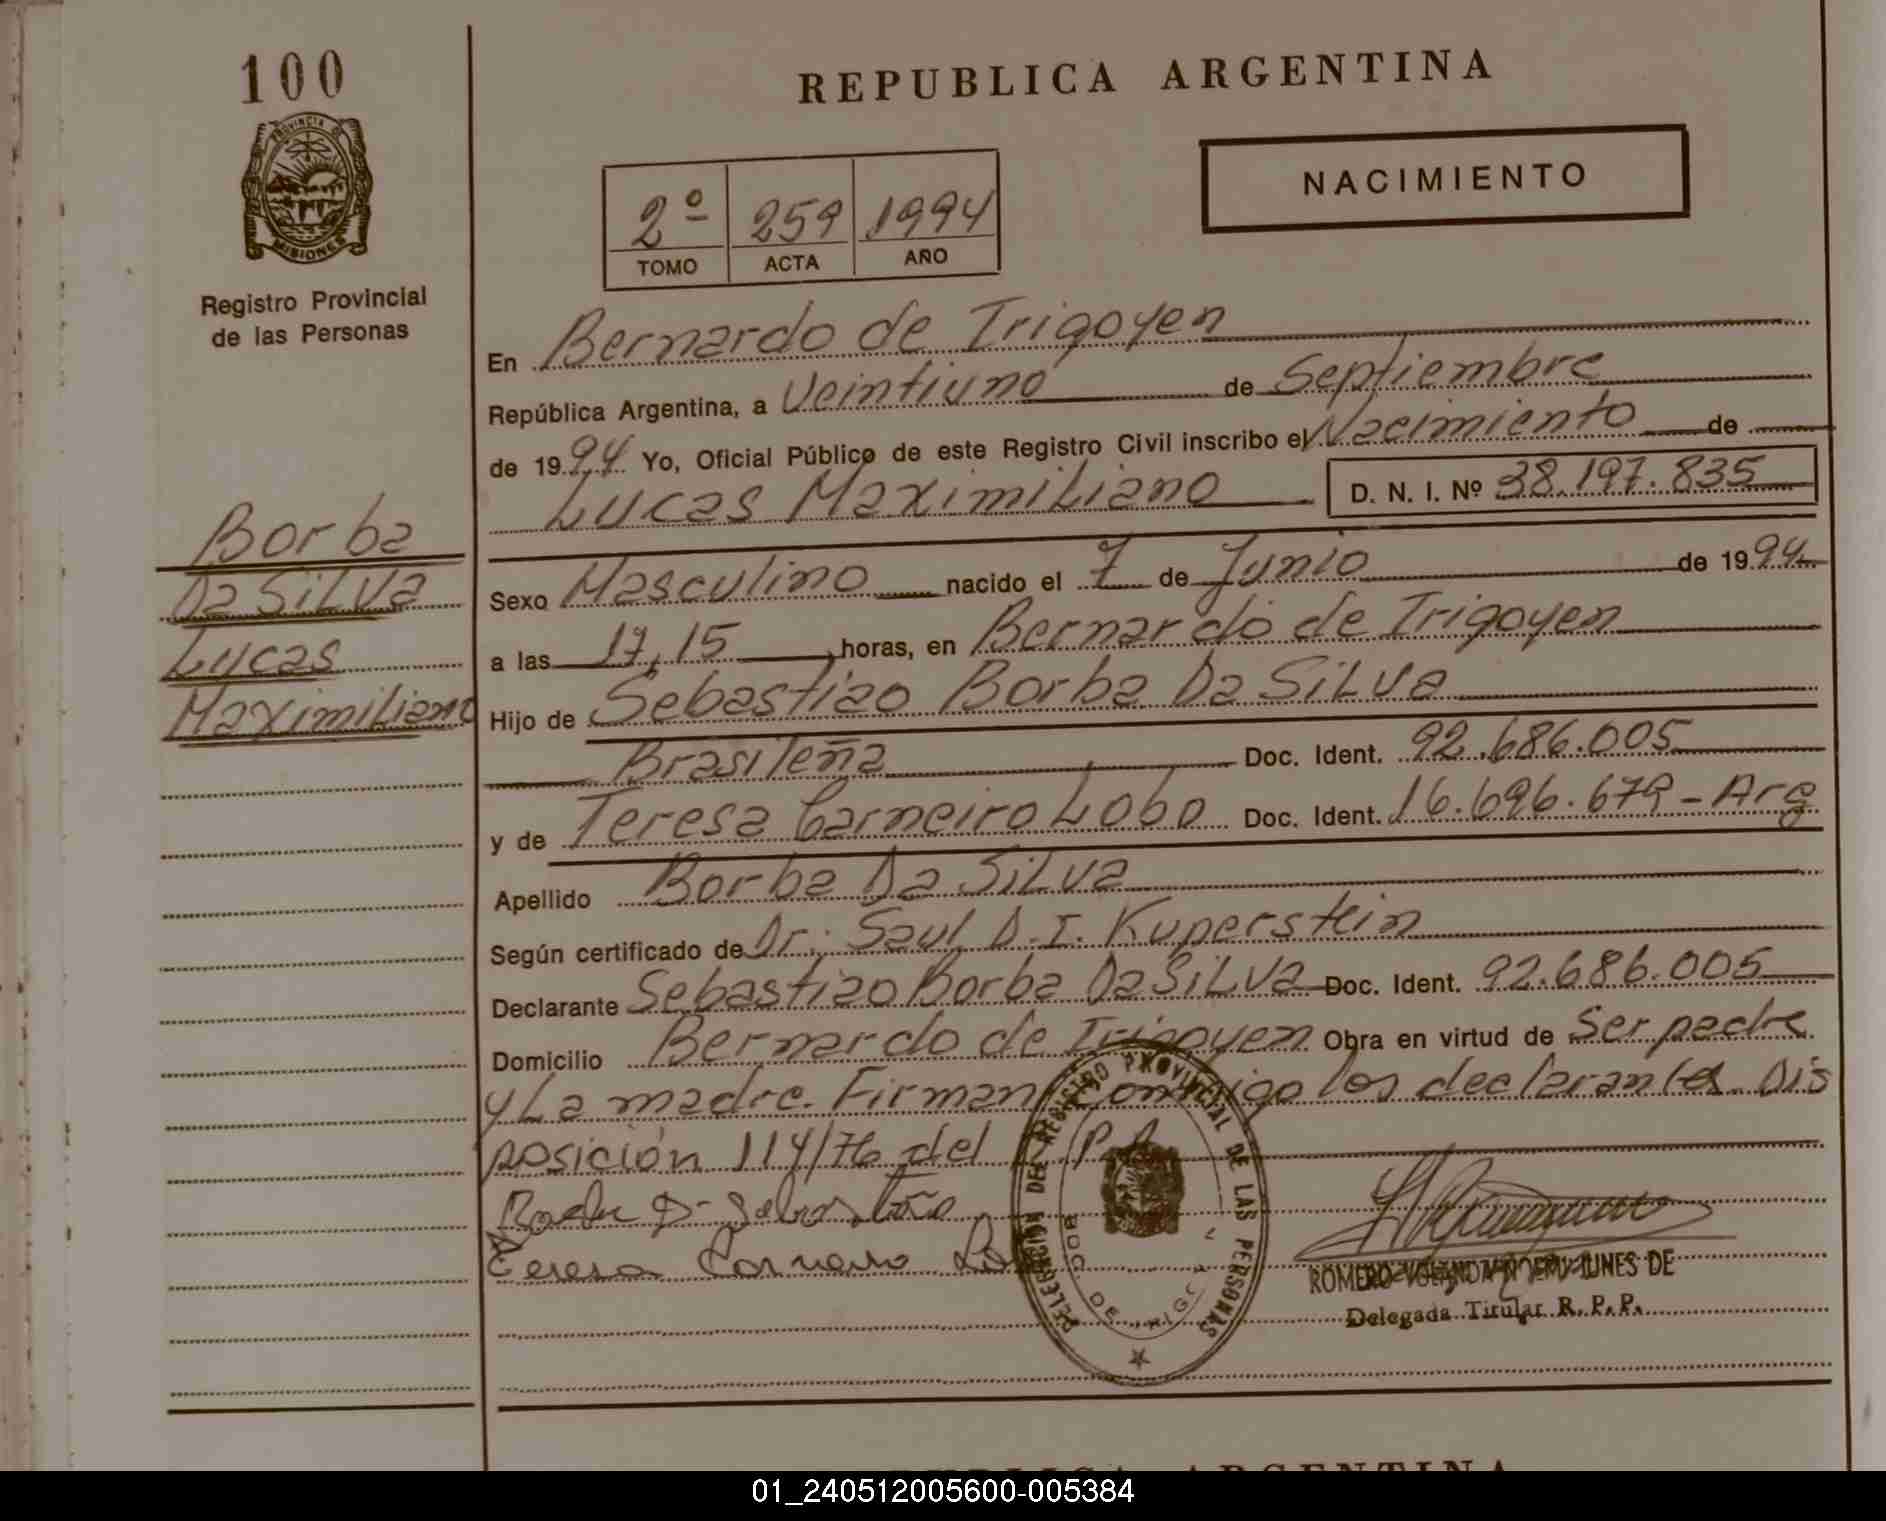 100
REPUBLICA ARGENTINA
PROVINCIA DE
MISIONES
NACIMIENTO
2º 259 1994
TOMO ACTA AÑO
Registro Provincial
de las Personas
En Bernardo de Irigoyen
República Argentina, a Veintiuno de Septiembre
de 1994 Yo, Oficial Público de este Registro Civil inscribo el Nacimiento de
Lucas Maximiliano D. N. I. Nº 38.197.835
Borba
Da Silva
Lucas
Maximiliano
Sexo Masculino nacido el 7 de Junio de 1994
a las 17,15 horas, en Bernardo de Irigoyen
Hijo de Sebastiao Borba Da Silva
Brasileña Doc. Ident. 92.686.005
y de Teresa Carneiro Lobo Doc. Ident. 16.696.679 - Arg
Apellido Borba Da Silva
Según certificado de Dr. Saul D. I. Kuperstein
Declarante Sebastiao Borba Da Silva Doc. Ident. 92.686.005
Domicilio Bernardo de Irigoyen Obra en virtud de Ser padre
y La madre. Firman conmigo los declarantes. Dis
posición 114/76 del
Teresa
DELEGACION DEL REGISTRO PROVINCIAL DE LAS PERSONAS
BDO. DE IRIGOYEN
ROMERO NUNES DE
Delegada Titular R.P.P.
REPUBLICA ARGENTINA
01_240512005600-005384